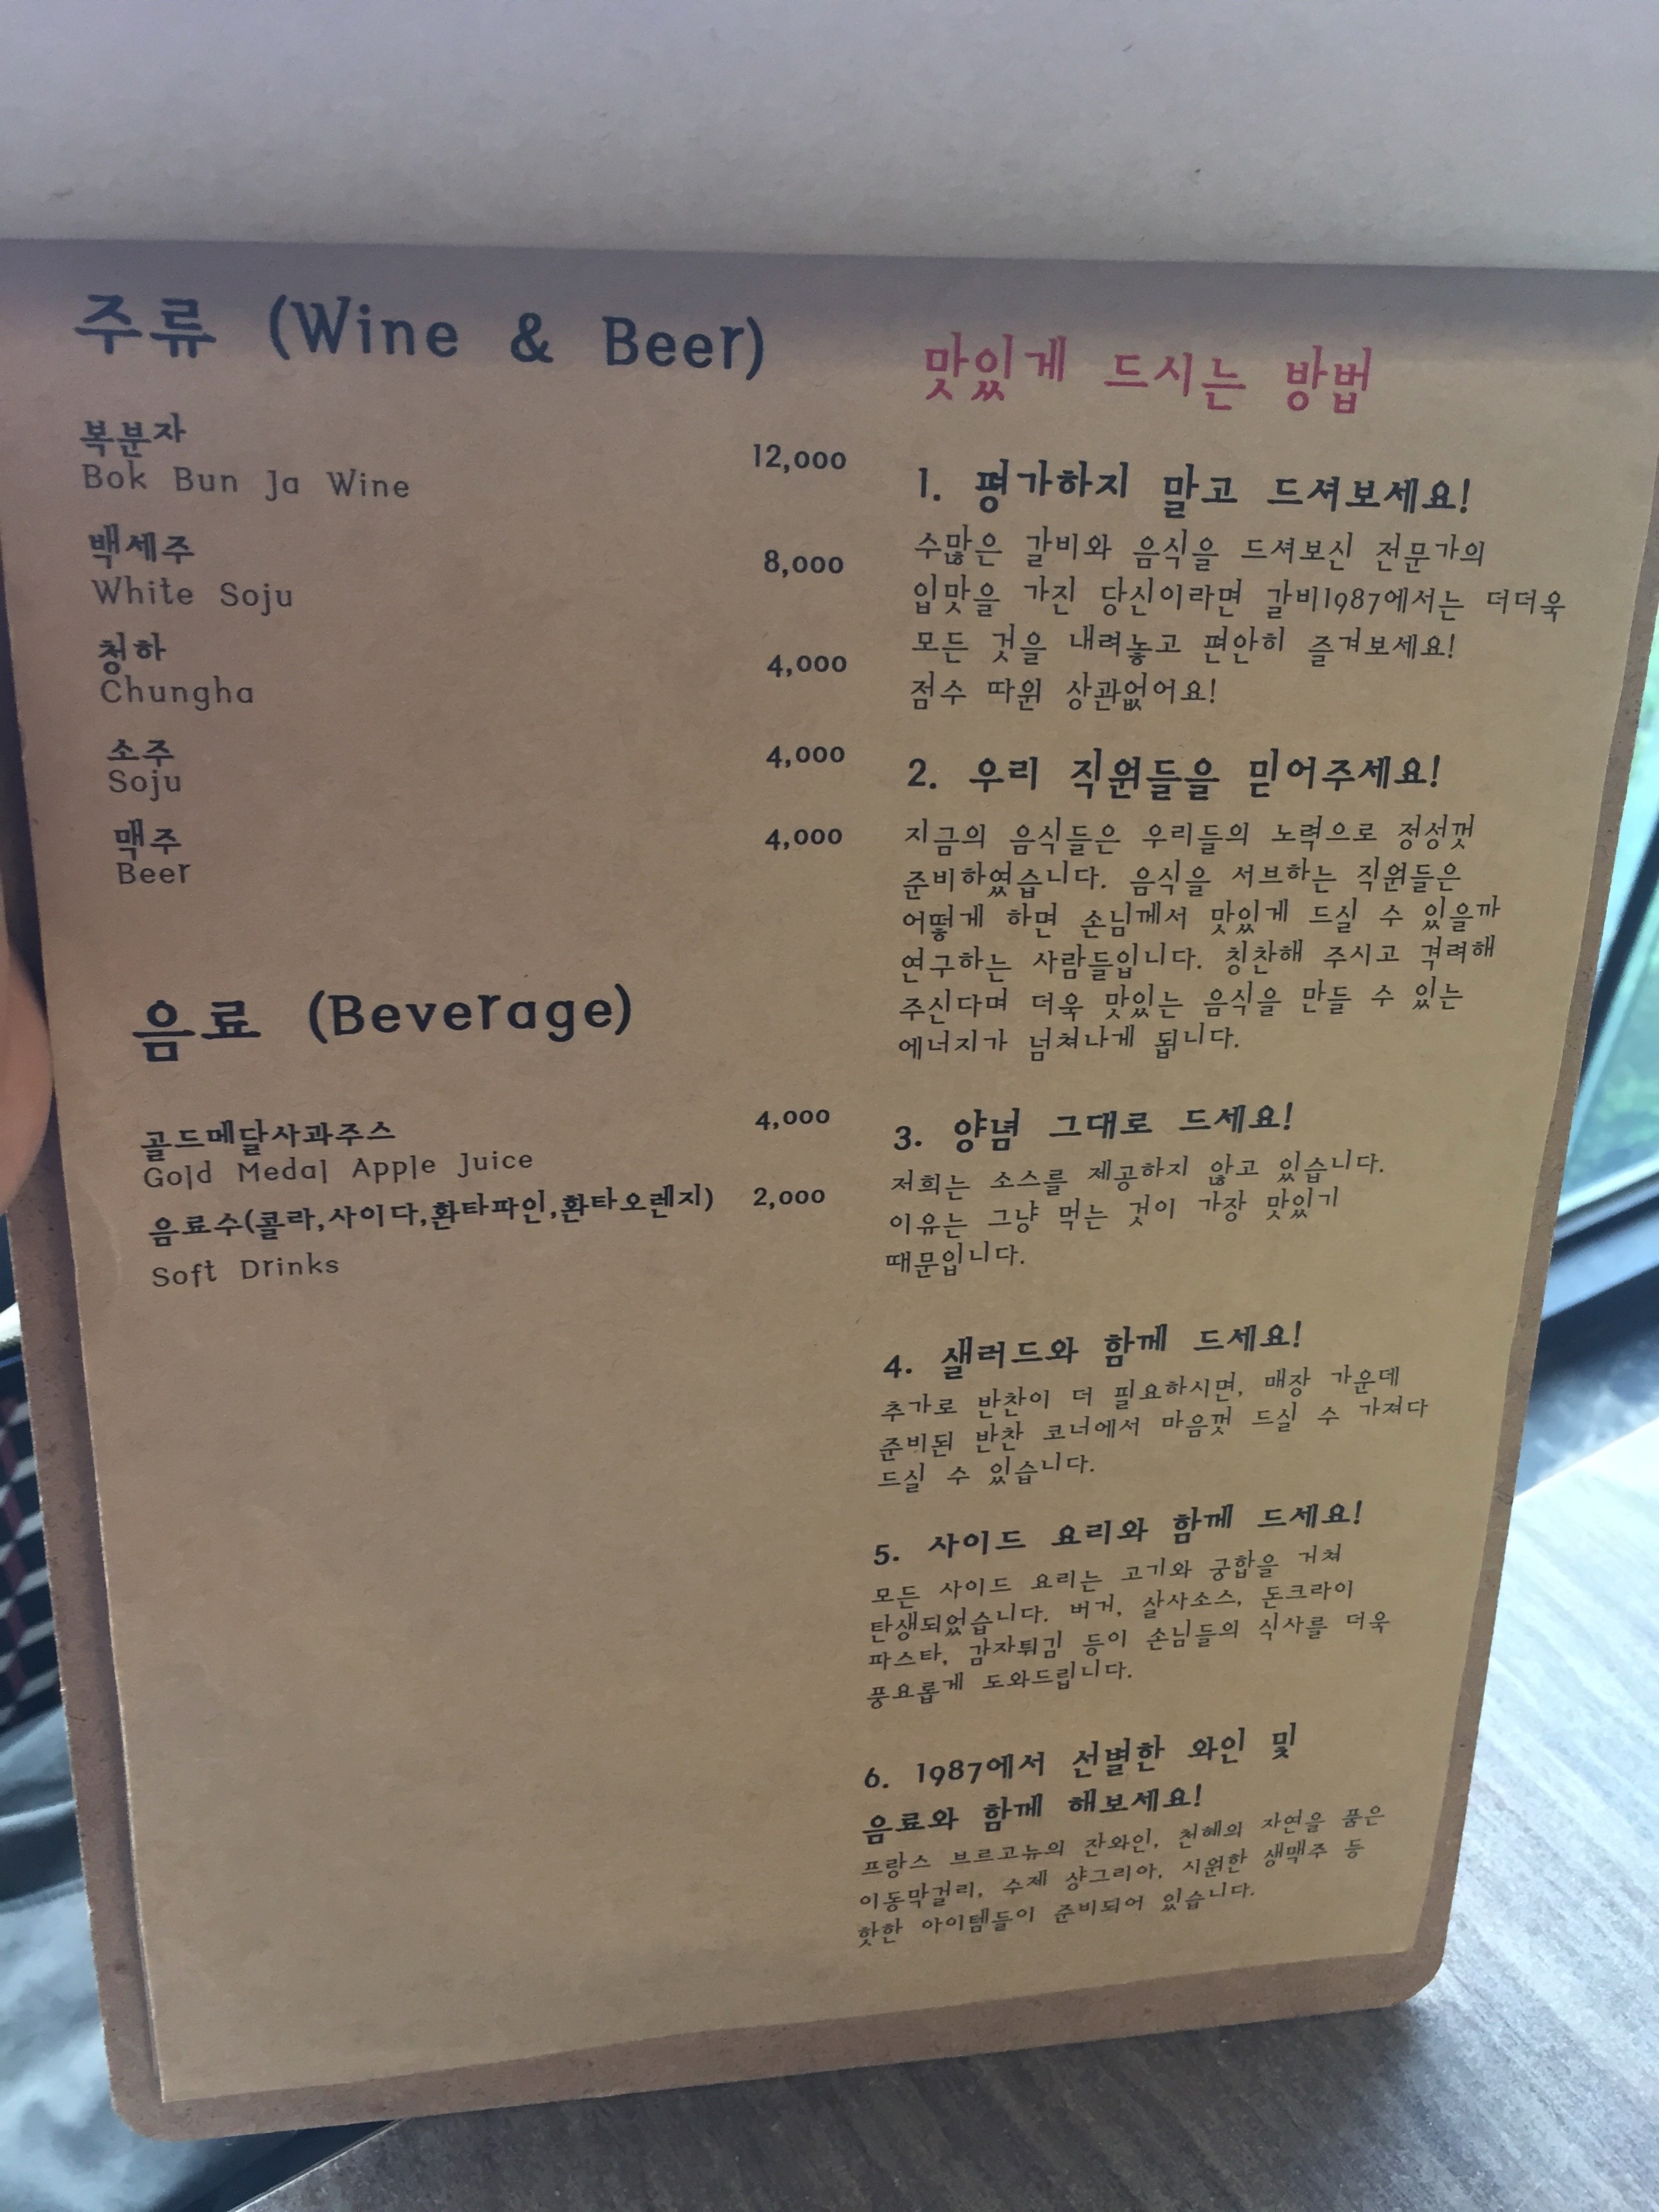 주류 (Wine & Beer)
복분자
Bok Bun Ja Wine
12,000
백세주
White Soju
8,000
청하
Chungha
4,000
소주
Soju
4,000
맥주
Beer
4,000
음료 (Beverage)
골드메달사과주스
Gold Medal Apple Juice
4,000
음료수(콜라,사이다,환타파인,환타오렌지) 2,000
Soft Drinks
맛있게 드시는 방법
1. 평가하지 말고 드셔보세요!
수많은 갈비와 음식을 드셔보신 전문가의
입맛을 가진 당신이라면 갈비1987에서는 더더욱
모든 것을 내려놓고 편안히 즐겨보세요!
점수 따윈 상관없어요!
2. 우리 직원들을 믿어주세요!
지금의 음식들은 우리들의 노력으로 정성껏
준비하였습니다. 음식을 서브하는 직원들은
어떻게 하면 손님께서 맛있게 드실 수 있을까
연구하는 사람들입니다. 칭찬해 주시고 격려해
주신다며 더욱 맛있는 음식을 만들 수 있는
에너지가 넘쳐나게 됩니다.
3. 양념 그대로 드세요!
저희는 소스를 제공하지 않고 있습니다.
이유는 그냥 먹는 것이 가장 맛있기
때문입니다.
4. 샐러드와 함께 드세요!
추가로 반찬이 더 필요하시면, 매장 가운데
준비된 반찬 코너에서 마음껏 드실 수 가져다
드실 수 있습니다.
5. 사이드 요리와 함께 드세요!
모든 사이드 요리는 고기와 궁합을 거쳐
탄생되었습니다. 버거, 살사소스, 돈크라이
파스타, 감자튀김 등이 손님들의 식사를 더욱
풍요롭게 도와드립니다.
6. 1987에서 선별한 와인 및
음료와 함께 해보세요!
프랑스 브르고뉴의 잔와인, 천혜의 자연을 품은
이동막걸리, 수제 샹그리아, 시원한 생맥주 등
핫한 아이템들이 준비되어 있습니다.